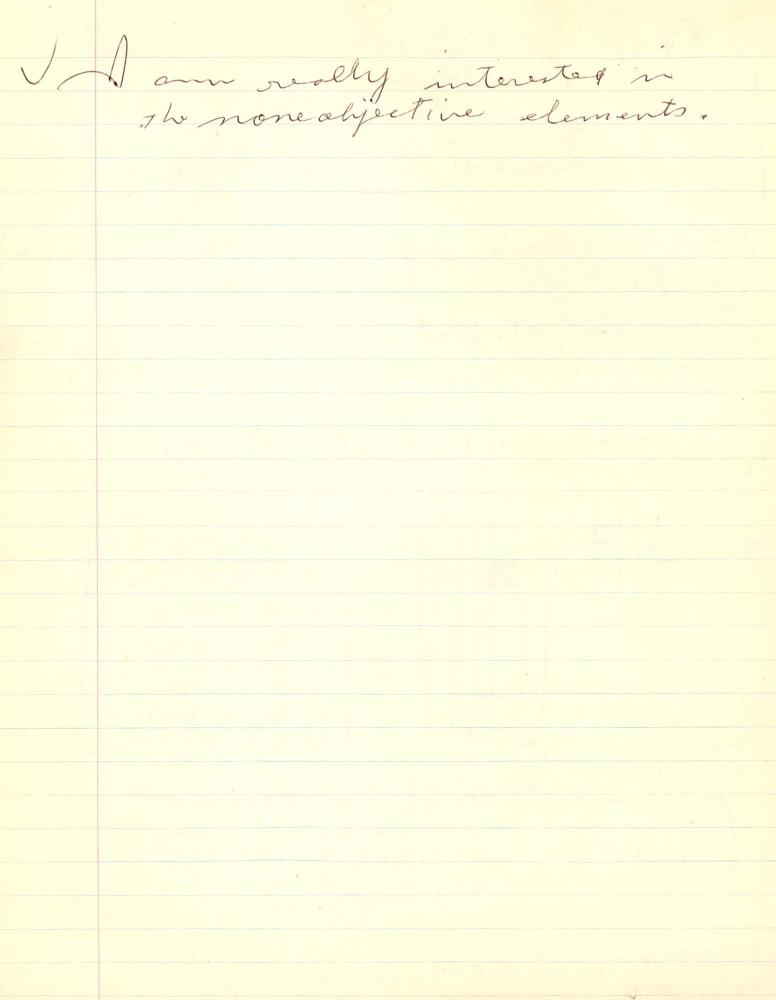 ✓ I am really interested in
the noneobjective elements.